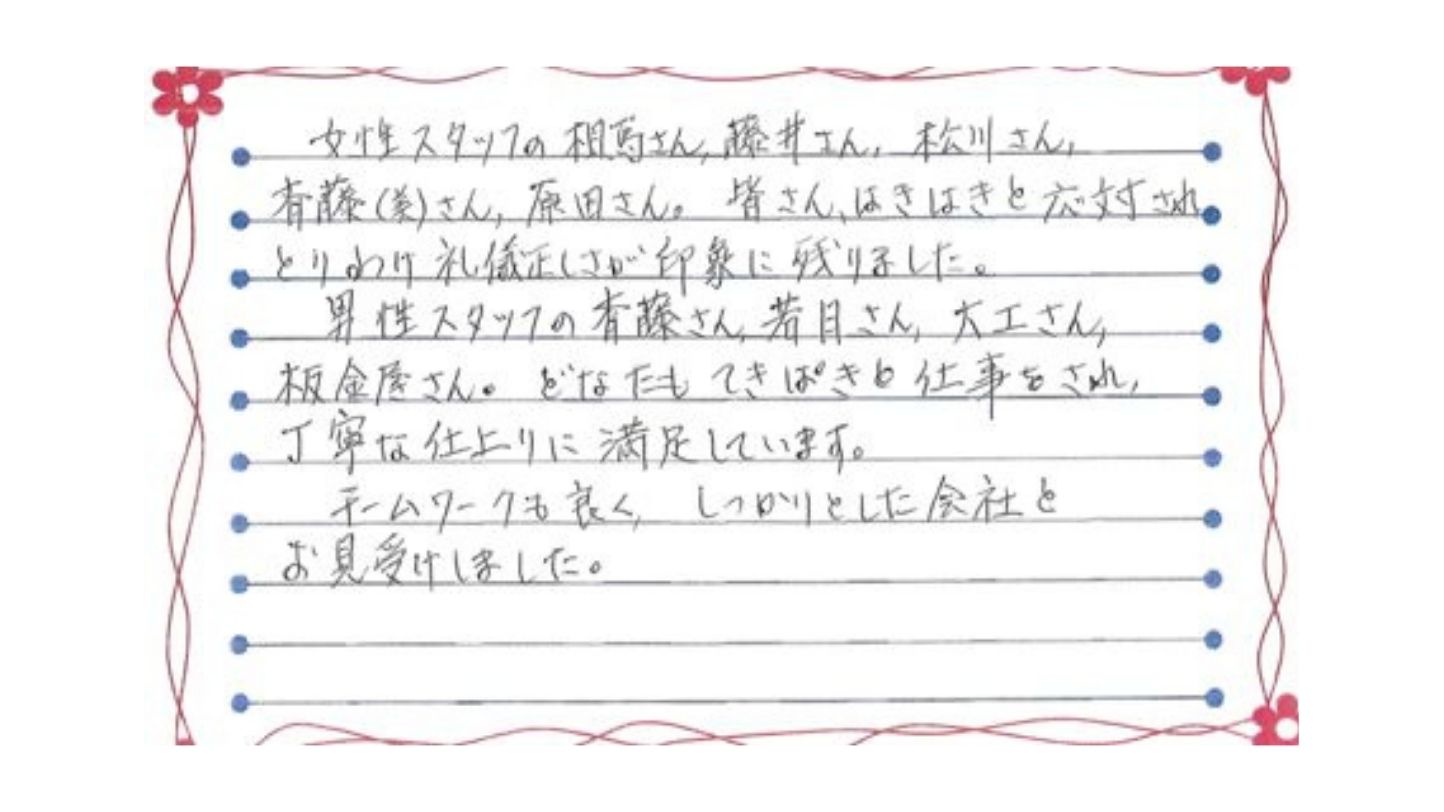 女性スタッフの相馬さん,藤井さん,松川さん,
斉藤(美)さん,原田さん。皆さん、はきはきと応対され
とりわけ礼儀正しさが印象に残りました。
男性スタッフの斉藤さん,若目さん,大工さん,
板金屋さん。どなたもてきぱきと仕事をされ,
丁寧な仕上りに満足しています。
チームワークも良く,しっかりとした会社と
お見受けしました。